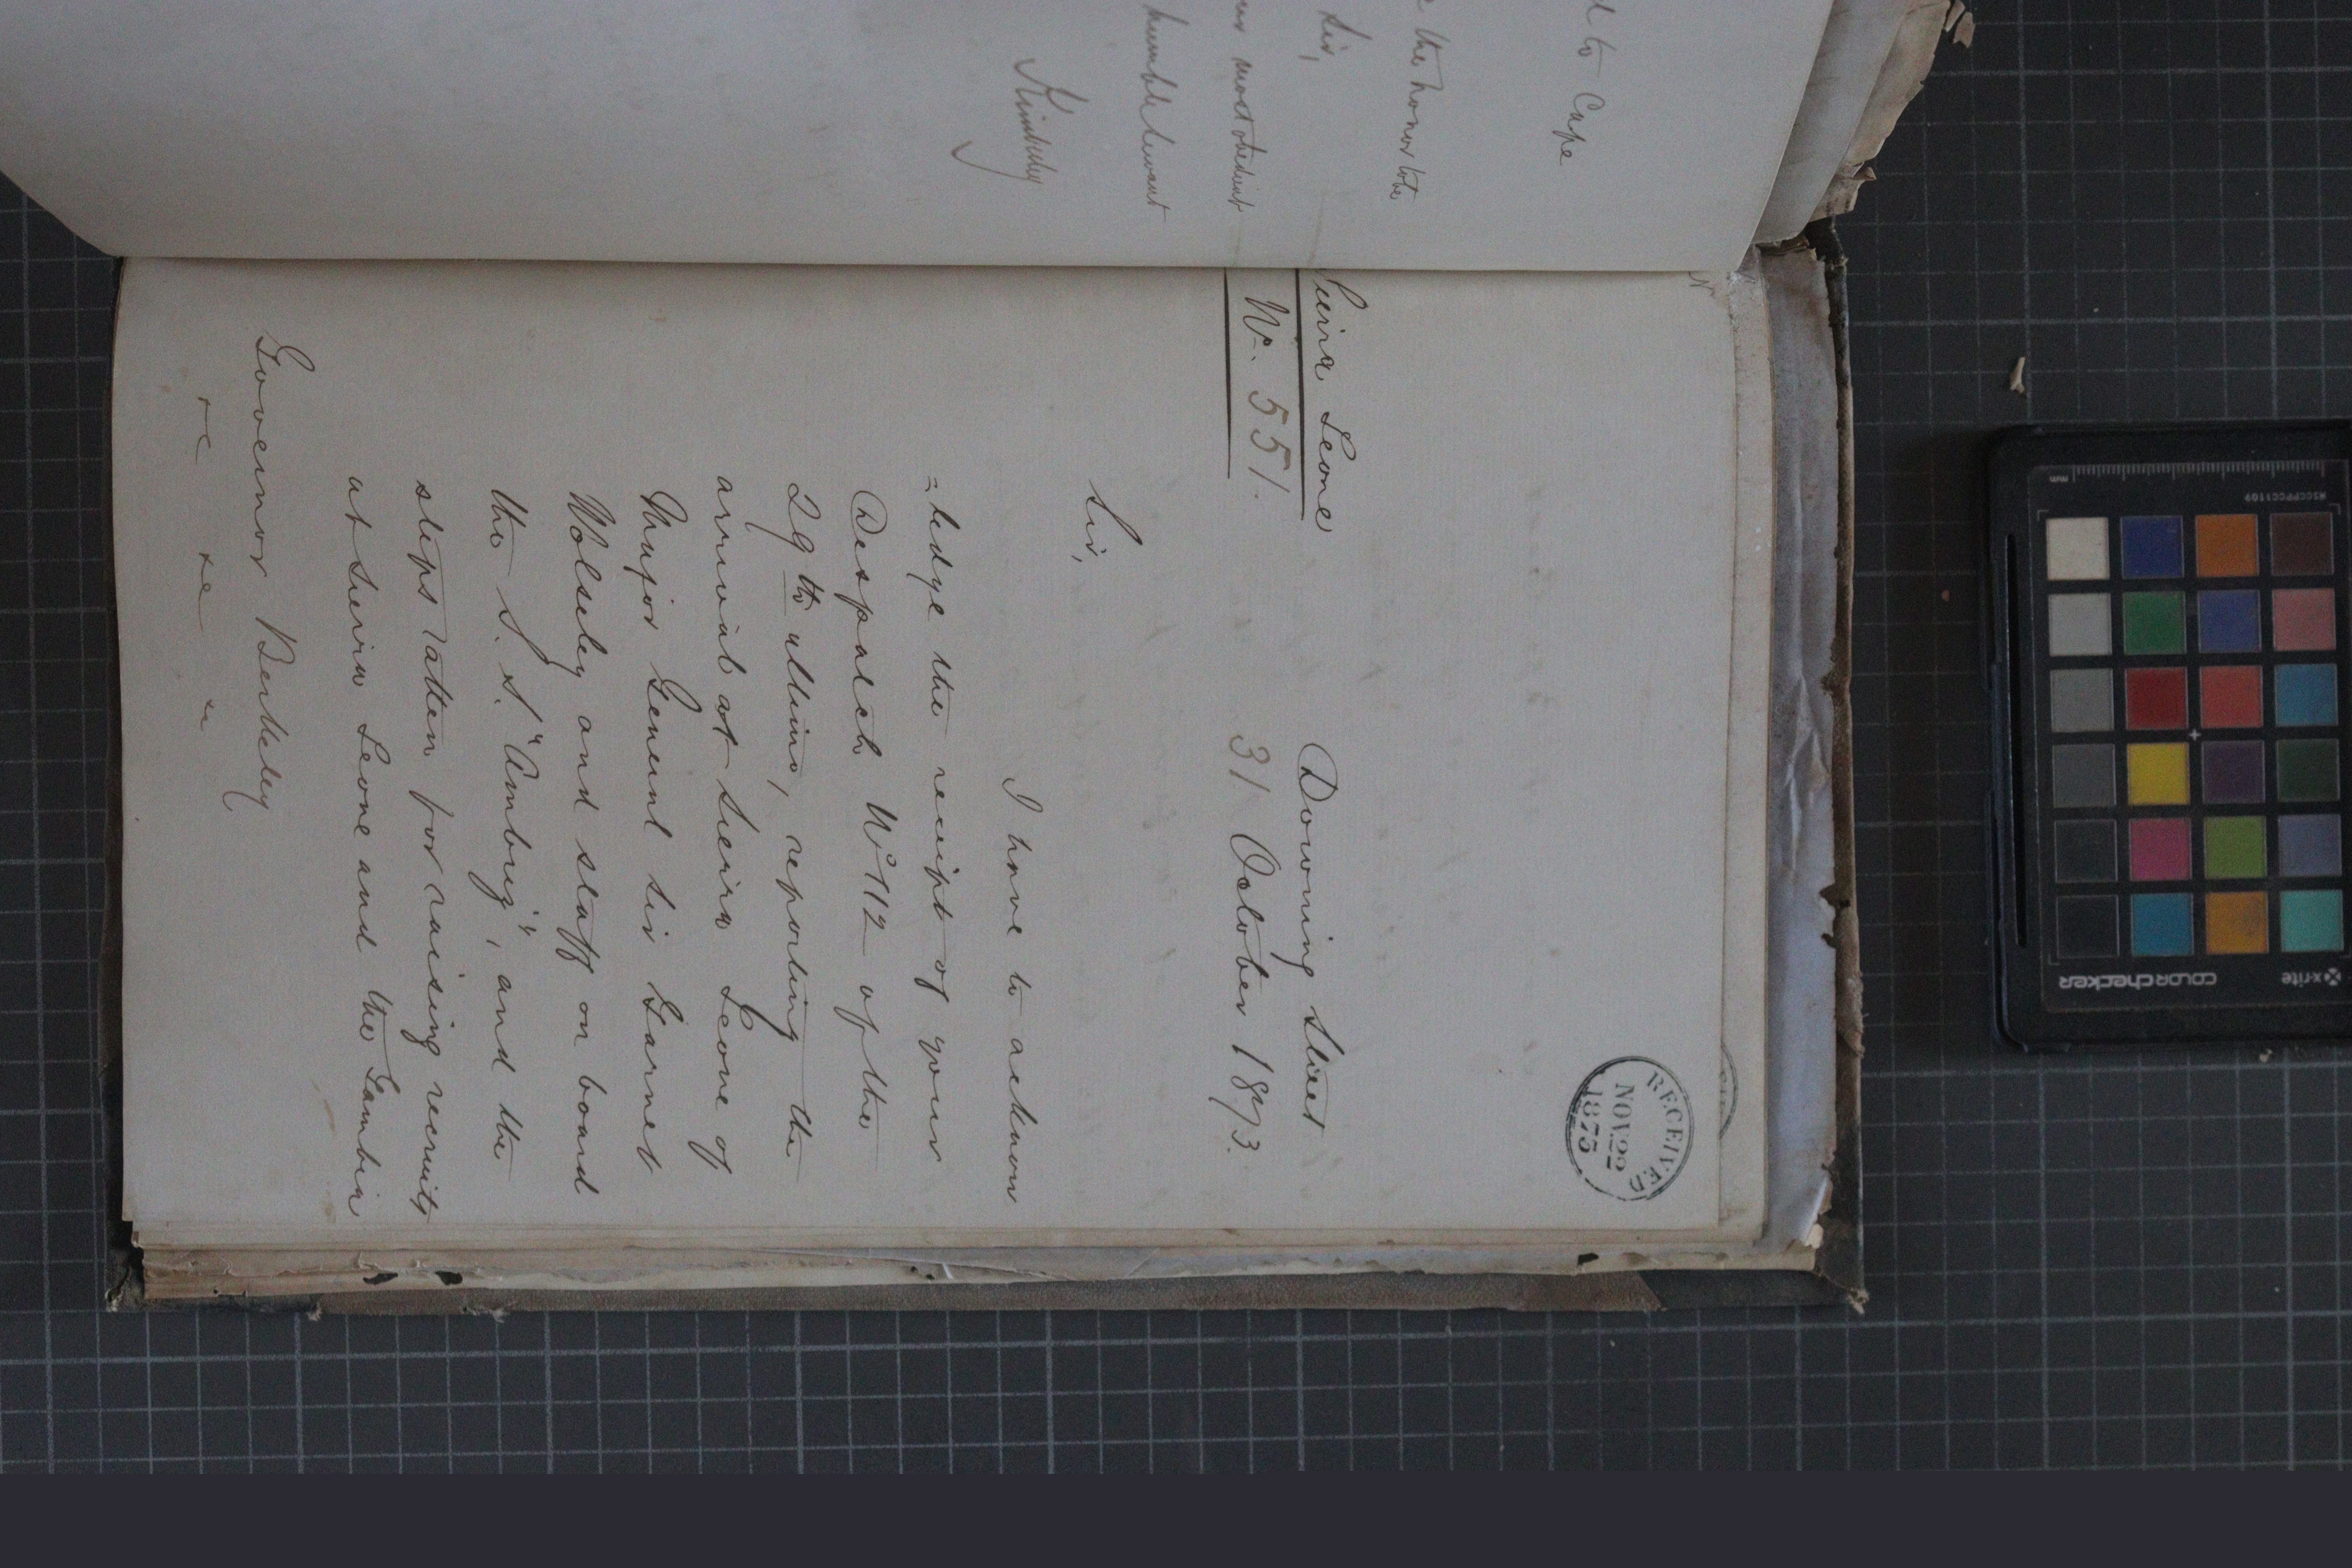 d to Cape
the honor to be
Sir,
most obedient
humble Servant
Kimberley
RECEIVED
NOV 22
1873
Sierra Leone
No. 551.
Downing Street
31 October 1873.
Sir,
I have to acknow
=ledge the receipt of your
Despatch No 112 of the
29th ultimo, reporting the
arrival at Sierra Leone of
Major General Sir Garnet
Wolseley and staff on board
the S. S. "Ambriz", and the
steps taken for raising recruits
at Sierra Leone and the Gambia
Governor Berkeley
&c &c &c
mm
MSCCPPCC1109
x-rite
COLORCHECKER